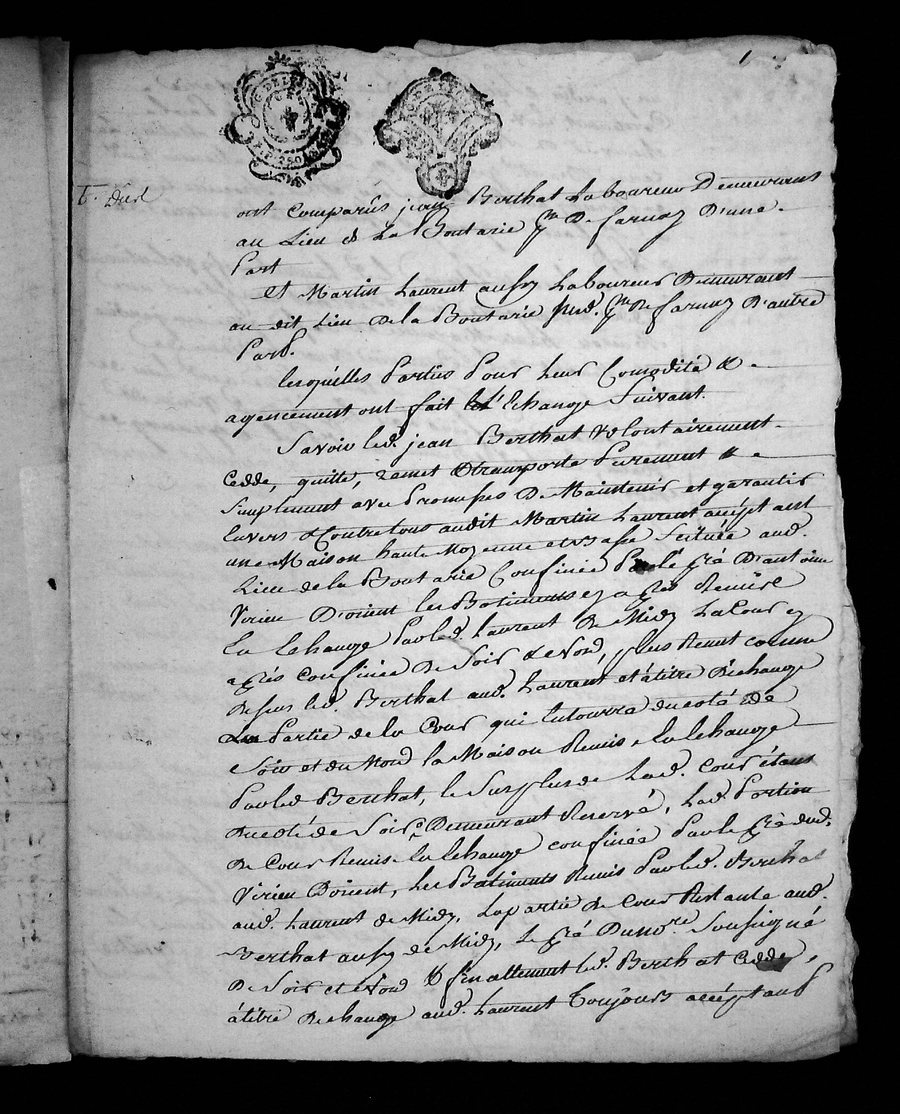 G. DE LYON
P.P. 250
ont comparûs jean Berthat Laboureur Demeurant
au Lieu de La Boutarie psse De farnay D'une
Part
Et Martin Laurent aussy Laboureur Demeurant
au dit Lieu De la Boutarie psse De farnay D'autre
Part.
lesquelles Parties Pour Leur Comodité &
agencement ont fait l'Echange Suivant.
Savoir led. jean Berthat Volontairement
Cedde, quitte, remet & transporte Purement &
Simplement avec Promesses De Maintenir et garantir
Envers & Contre tous audit Martin Laurent acceptant
une Maison haute Moyenne et Basse Scituée aud.
Lieu de la Boutarie Confinée Par le D'antoine
Virieu D'orient les Batiments cy après Remis
En Echange Par led. Laurent De Midy La Cour cy
après Confinée De Soir & Nord, plus Remet comme
Dessus led. Berthat aud. Laurent et à titre D'échange
La Partie de la Cour qui Entourra du coté de
Soir et du Nord la Maison Remise En Echange
Par led. Berthat, le Surplus de Lad. Cour étant
Du coté de Soir Demeurant Reservé, Lad. Portion
De Cour Remise En Echange confinée Par le dud.
Virieu D'orient, Les Batiments Remis Par led. Berthat
aud. Laurent de Midy, La partie De Cour Restante aud.
Berthat aussy de Midy, Le Du nore. Soussigné
De Soir et Nord & finallement led. Berthat Cedde,
à titre D'echange aud. Laurent Toujours acceptant